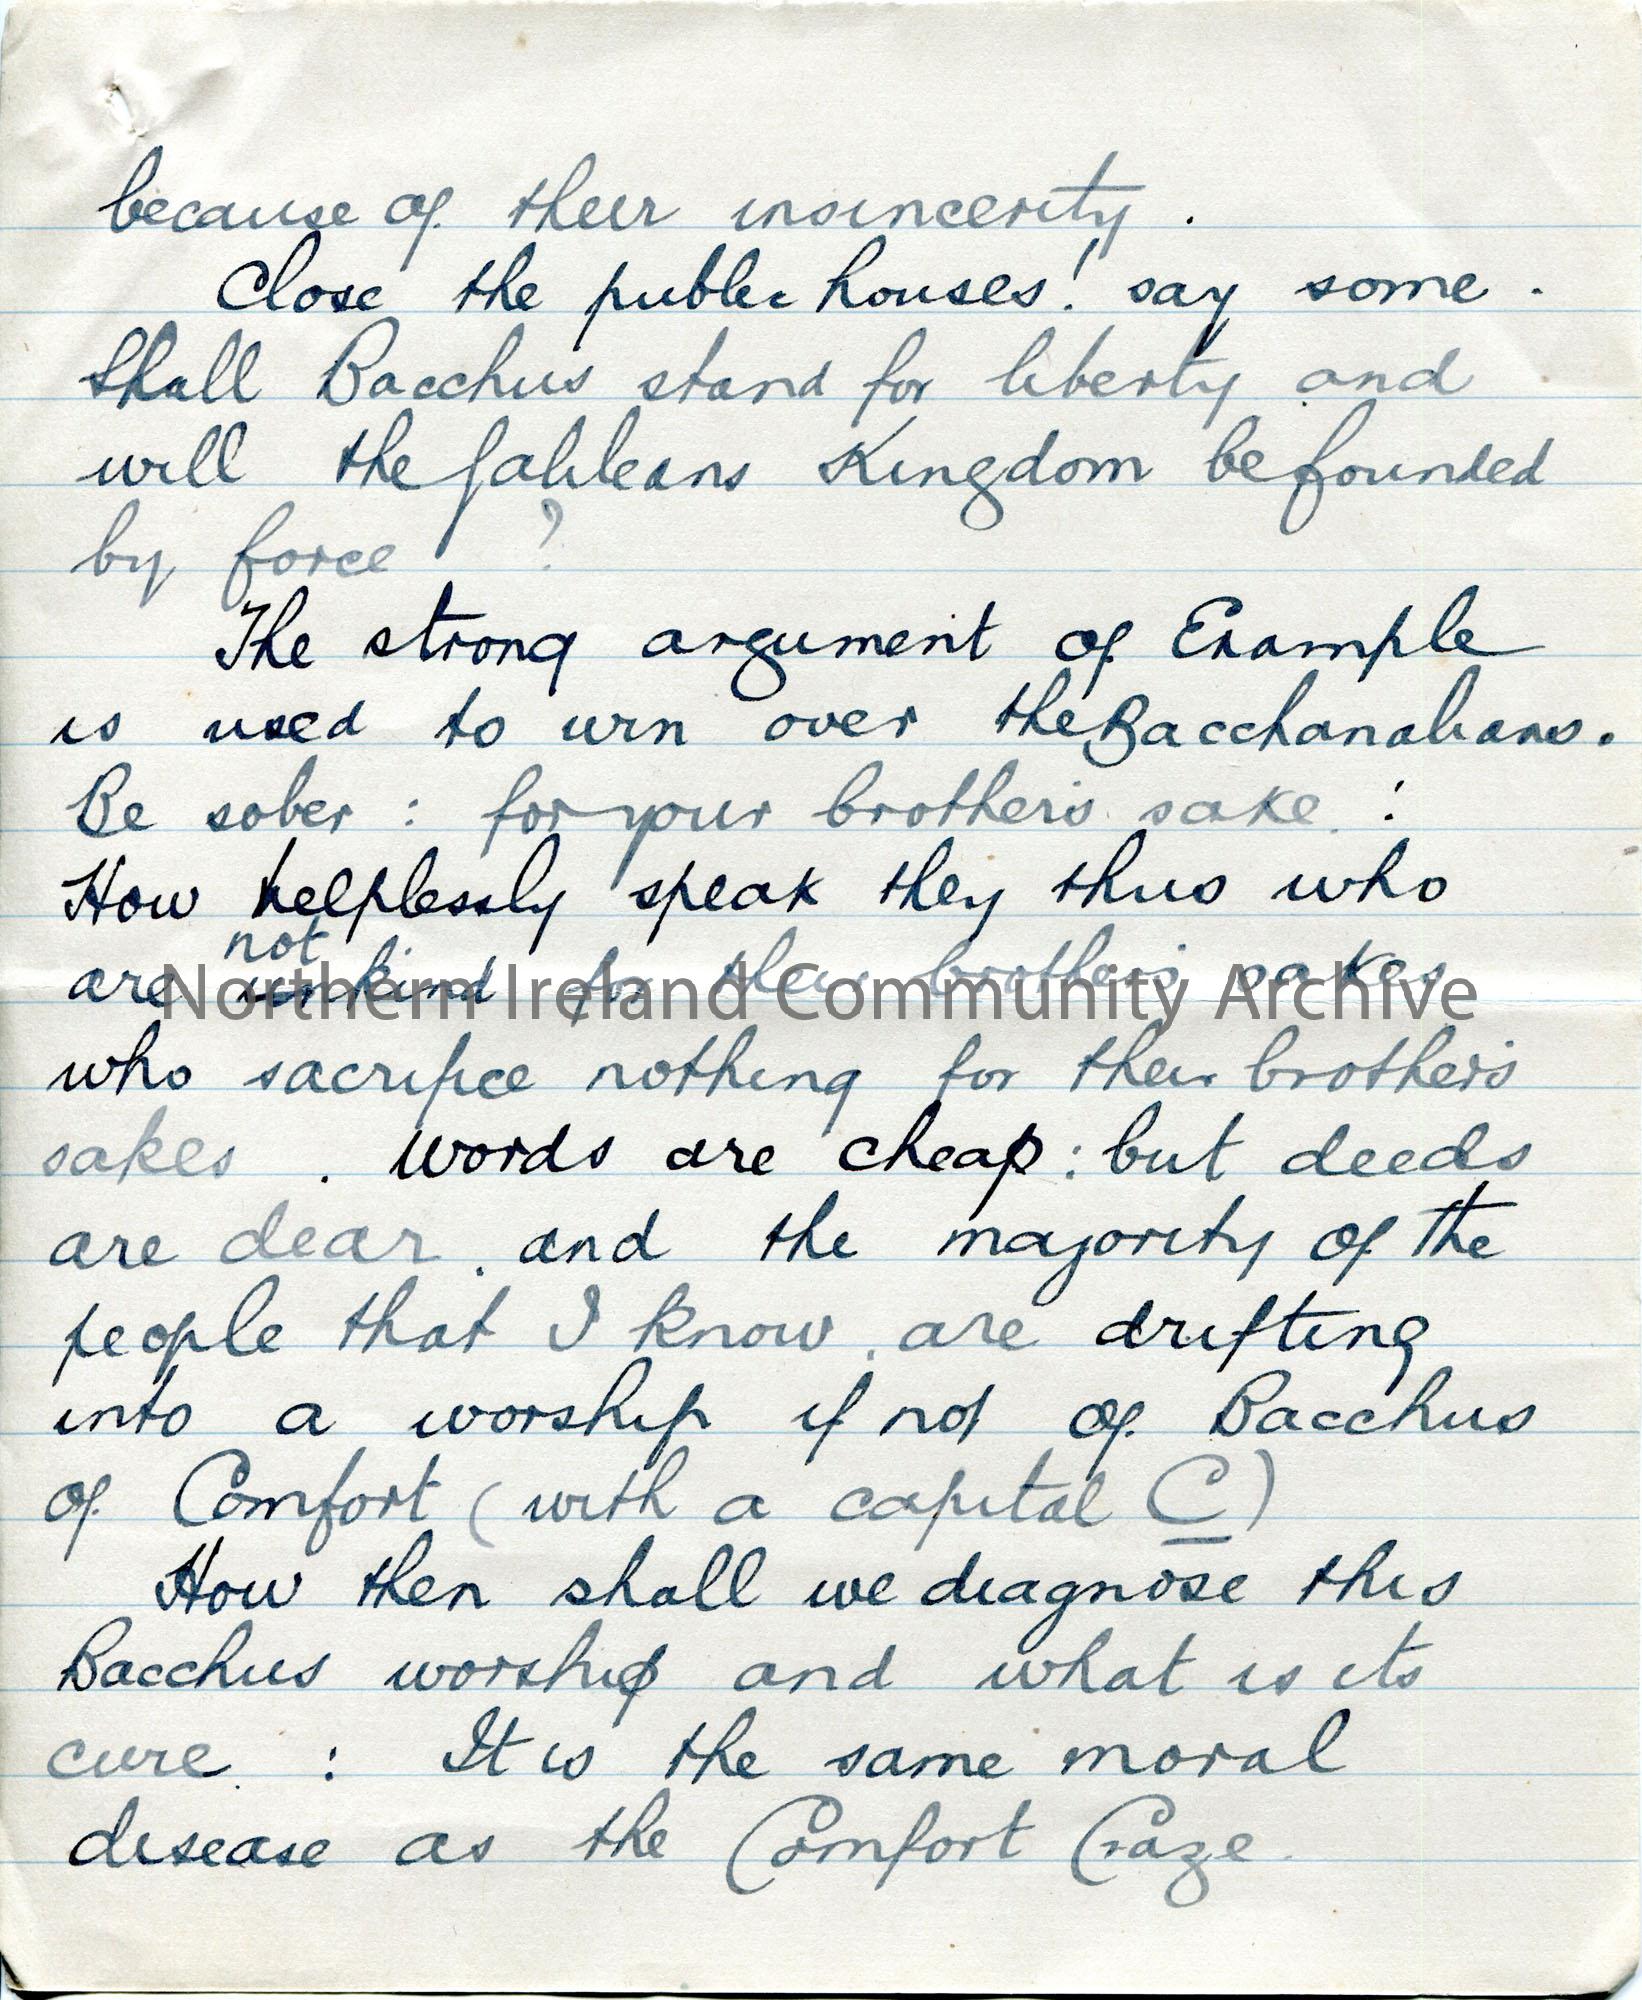 because of their insincerity.
Close the public houses! say some.
Shall Bacchus stand for liberty and
will the Galileans Kingdom be founded
by force ?
The strong argument of Example
is used to win over the Bacchanalians.
Be sober : for your brother's sake !
How helplessly speak they thus who
not
are unkind for their brother's sakes
Northern Ireland Community Archive
who sacrifice nothing for their brother's
sakes . Words are cheap : but deeds
are dear . and the majority of the
people that I know . are drifting
into a worship if not of Bacchus
of Comfort (with a capital C)
How then shall we diagnose this
Bacchus worship and what is its
cure : It is the same moral
disease as the Comfort Craze.